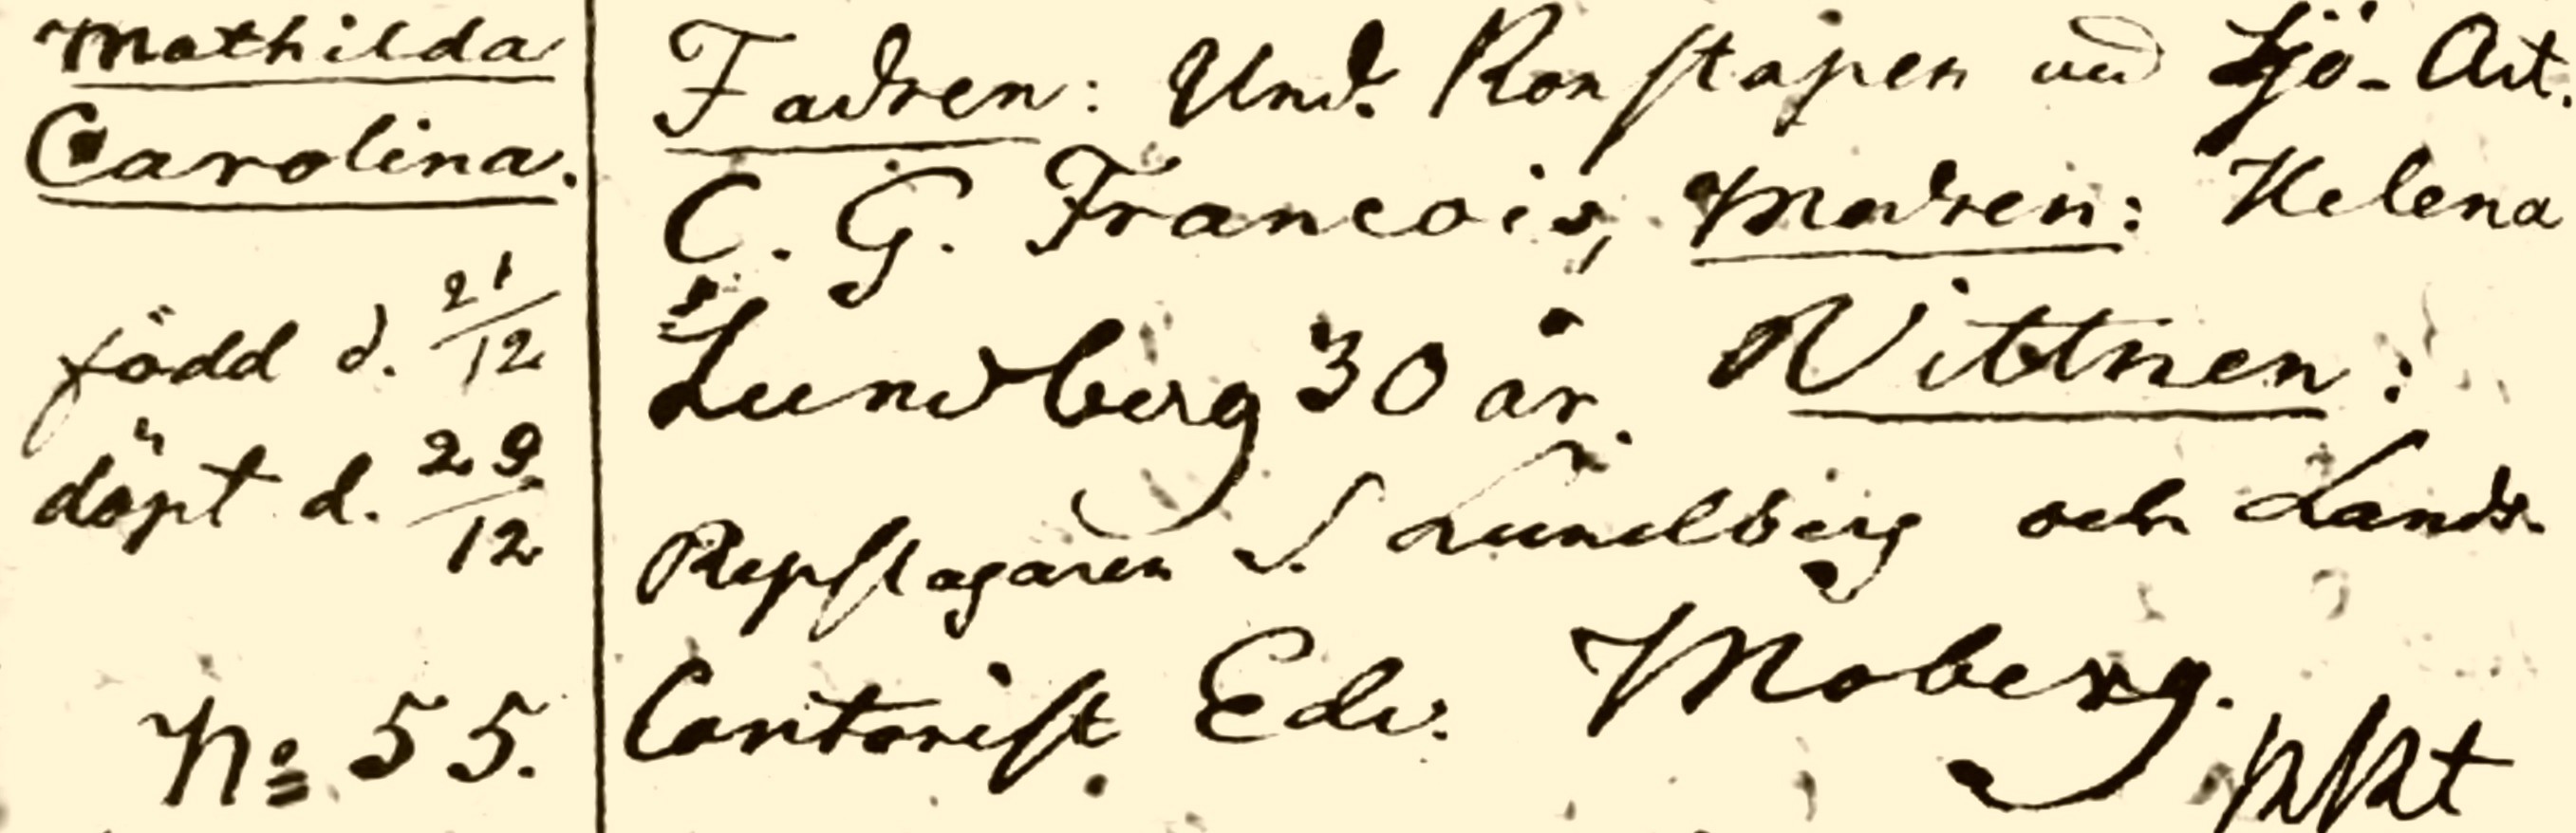 Mathilda
Carolina.
född d. 21/12
döpt d. 29/12
No 55.
Fadren: Und. Konstapen vid Sjö-Art.
C. G. Francois, Modren: Helena
Lundberg 30 år. Vittnen:
Repslagaren J. Lundberg och Lands
Contorist Edv. Moberg.